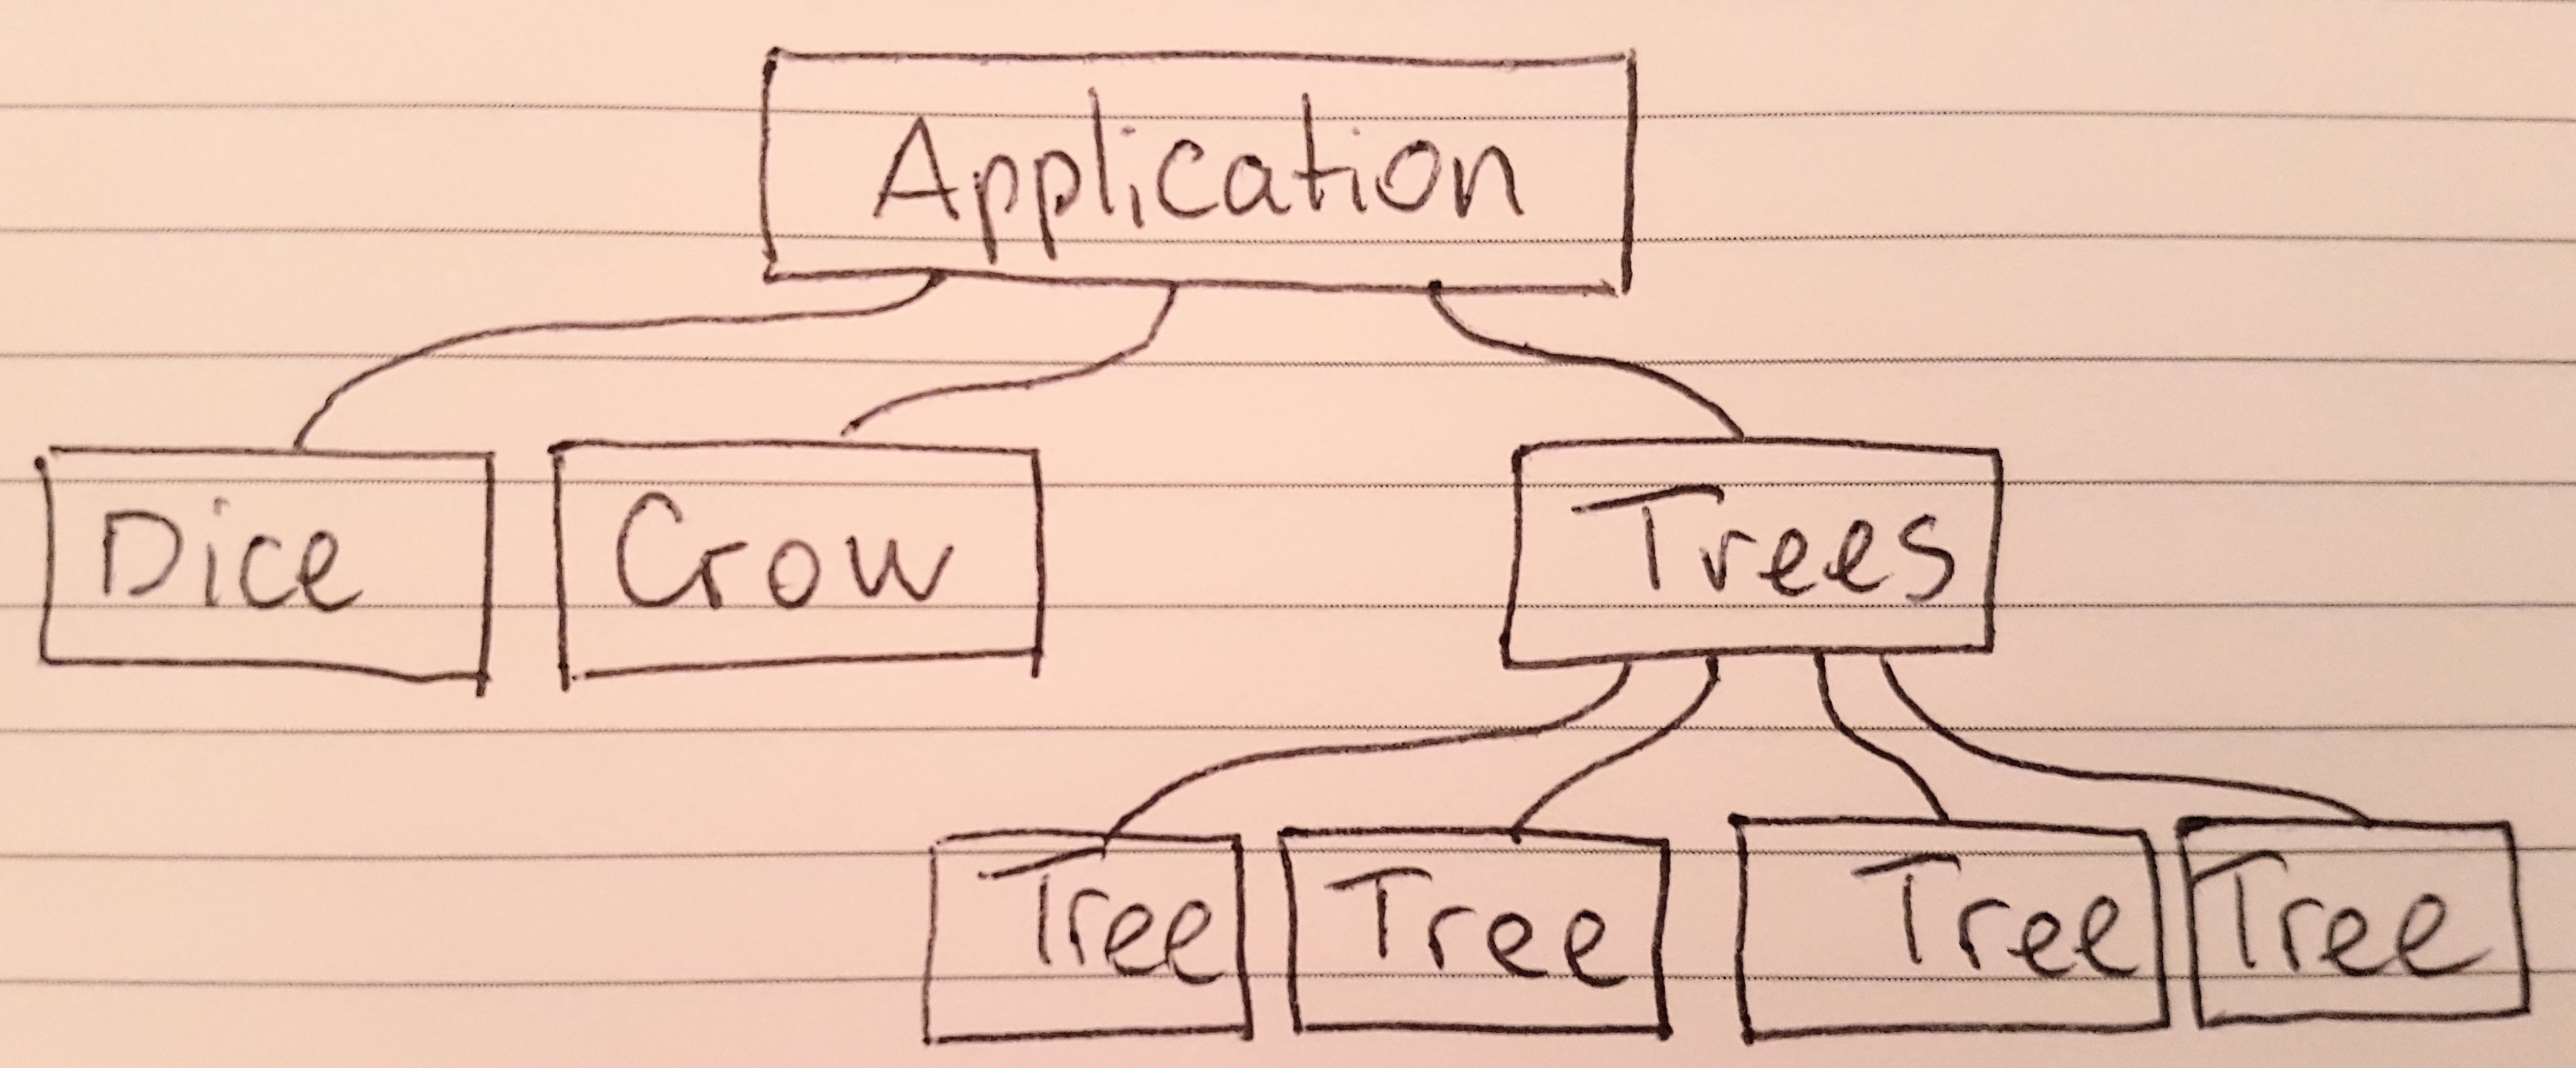 Application
Dice
Crow
Trees
Tree
Tree
Tree
Tree